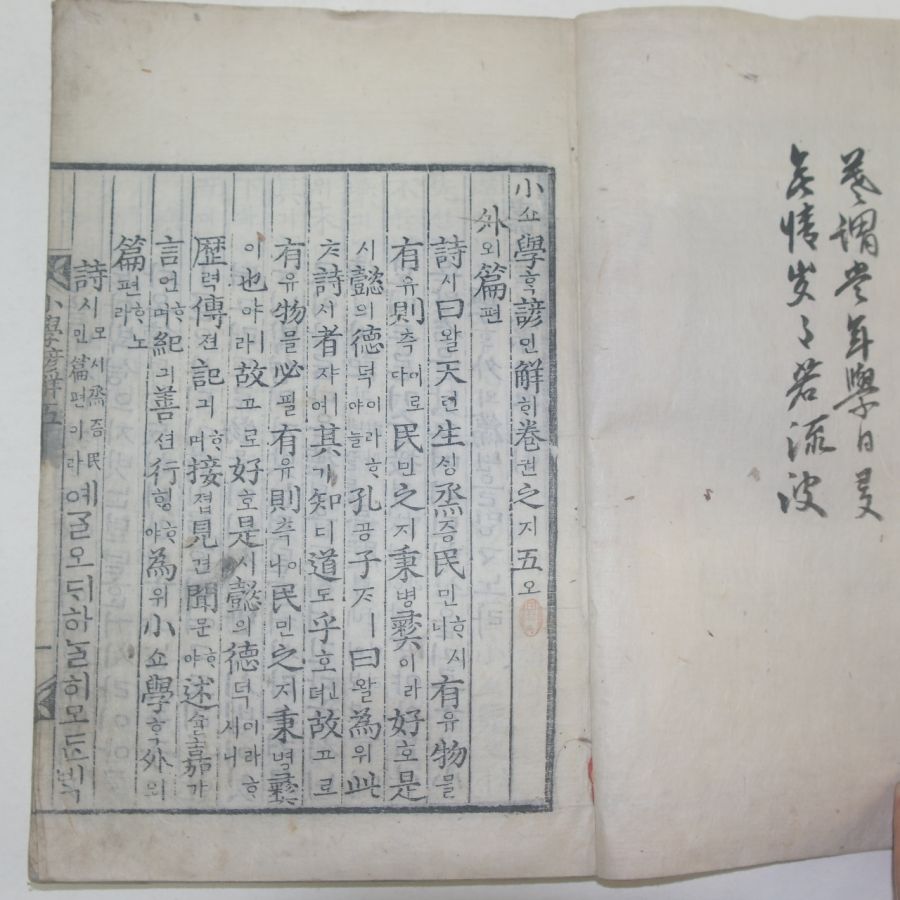 莫謂當年學日多
無情歲月若流波
小쇼學ᄒᆞᆨ諺언解ᄒᆡ卷권之지五오
外외篇편
詩시曰왈天텬生ᄉᆡᆼ烝증民민ᄒᆞ시니有유物믈
有유則측이로다民민之지秉병彝이라好호是
시懿의德덕이라ᄒᆞ야ᄂᆞᆯ孔공子ᄌᆞㅣ曰왈為위此
ᄎᆞ詩시者쟈ㅣ여其기知디道도乎호ㅣᆫ뎌故고로
有유物믈必필有유則측이니民민之지秉병彝
이也야ㅣ라故고로好호是시懿의德덕이라ᄒᆞ시니
歷력傳젼記긔ᄒᆞ며接졉見견聞문ᄒᆞ야述슐嘉가
言언ᄒᆞ며紀긔善션行ᄒᆡᆼᄒᆞ야為위小쇼學ᄒᆞᆨ外외
篇편ᄒᆞ노라
詩시모시烝증民민篇편이라예ᄀᆞᆯ오ᄃᆡ하ᄂᆞᆯ히모ᄃᆞᆫᄇᆡᆨ
小學諺解五
一